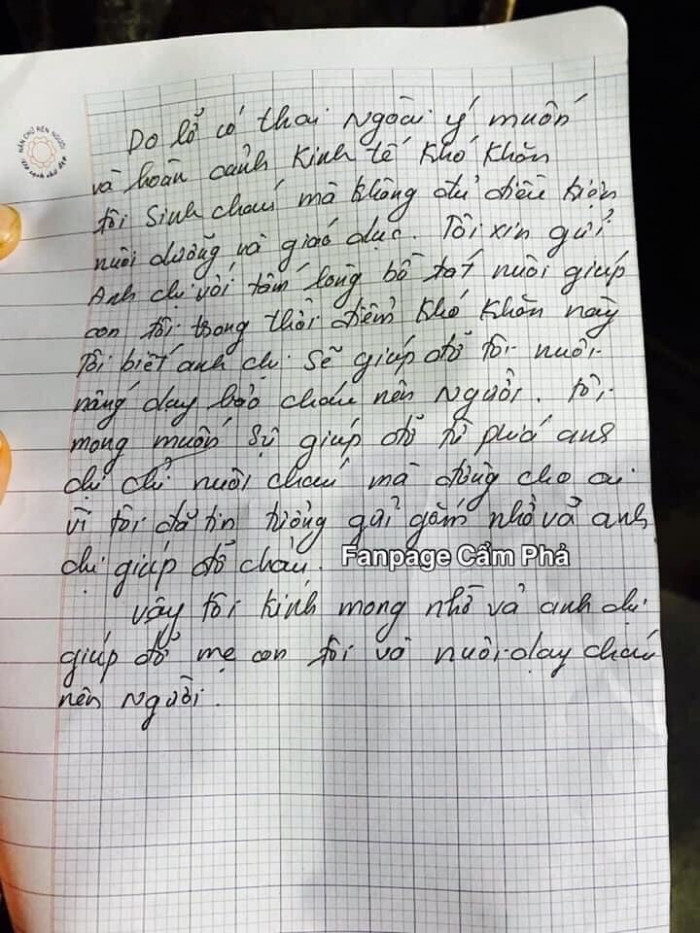 NÉN CHỮ NÊN NGƯỜI
Do lỡ có thai Ngoài ý muốn
và hoàn cảnh Kinh tế Khó Khăn
tôi Sinh cháu mà không đủ điều kiện
nuôi dưỡng và giáo dục. Tôi xin gửi
Anh chị với tấm lòng bồ tát nuôi giúp
con tôi trong thời điểm Khó Khăn này
Tôi biết anh chị sẽ giúp đỡ tôi nuôi
nấng dạy bảo cháu nên Người. Tôi
mong muốn sự giúp đỡ từ phía anh
chị chỉ nuôi cháu mà đừng cho ai
vì tôi đã tin tưởng gửi gắm nhờ vả anh
chị giúp đỡ cháu.
Fanpage Cẩm Phả
Vậy tôi Kính mong nhờ vả anh chị
giúp đỡ mẹ con tôi và nuôi dạy cháu
nên Người.